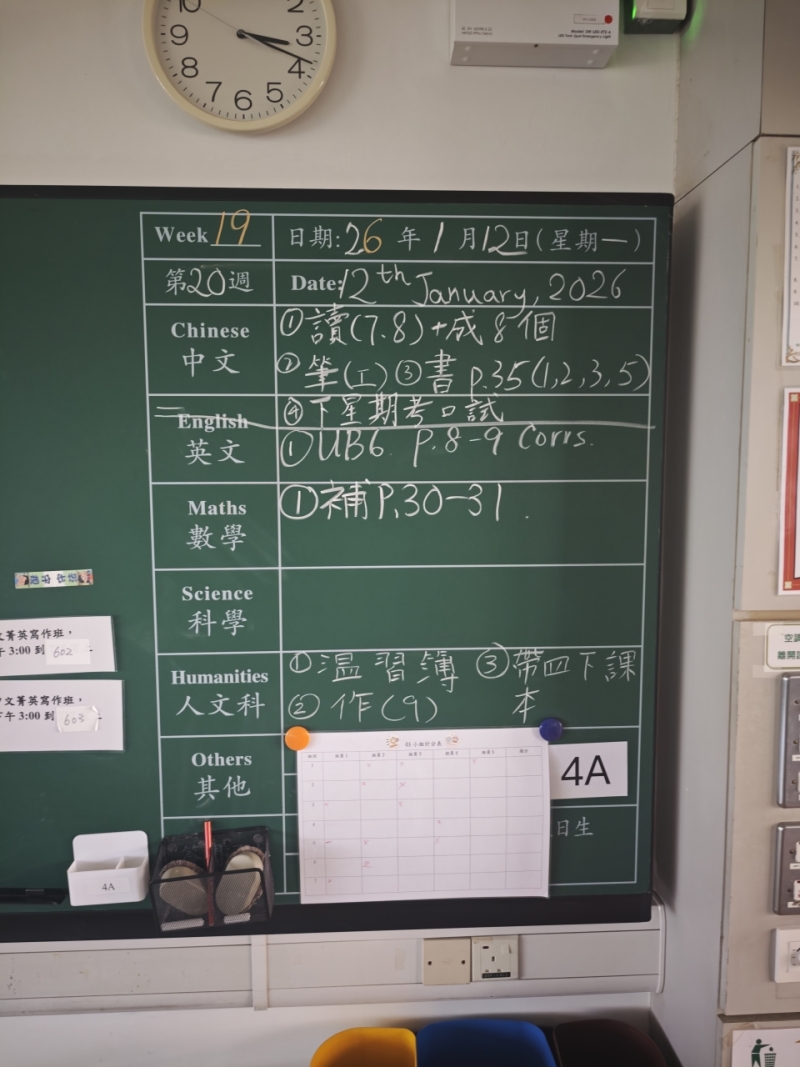 10 2
9 3
8 4
7 6 5
Week 19
日期: 26 年 1 月 12 日 (星期一)
第 20 週
Date: 12th January, 2026
Chinese
中文
① 讀(7.8)+成8個
② 筆(工) ③ 書 p.35(1,2,3,5)
④ 下星期考口試
English
英文
① UB6 P.8-9 Corrs.
Maths
數學
① 補P.30-31.
Science
科學
Humanities
人文科
① 溫習簿 ③ 帶四下課
② 作(9) 本
Others
其他
4A
日生
文菁英寫作班，
午 3:00 到 602
中文菁英寫作班，
下午 3:00 到 603
4A
空調
離開